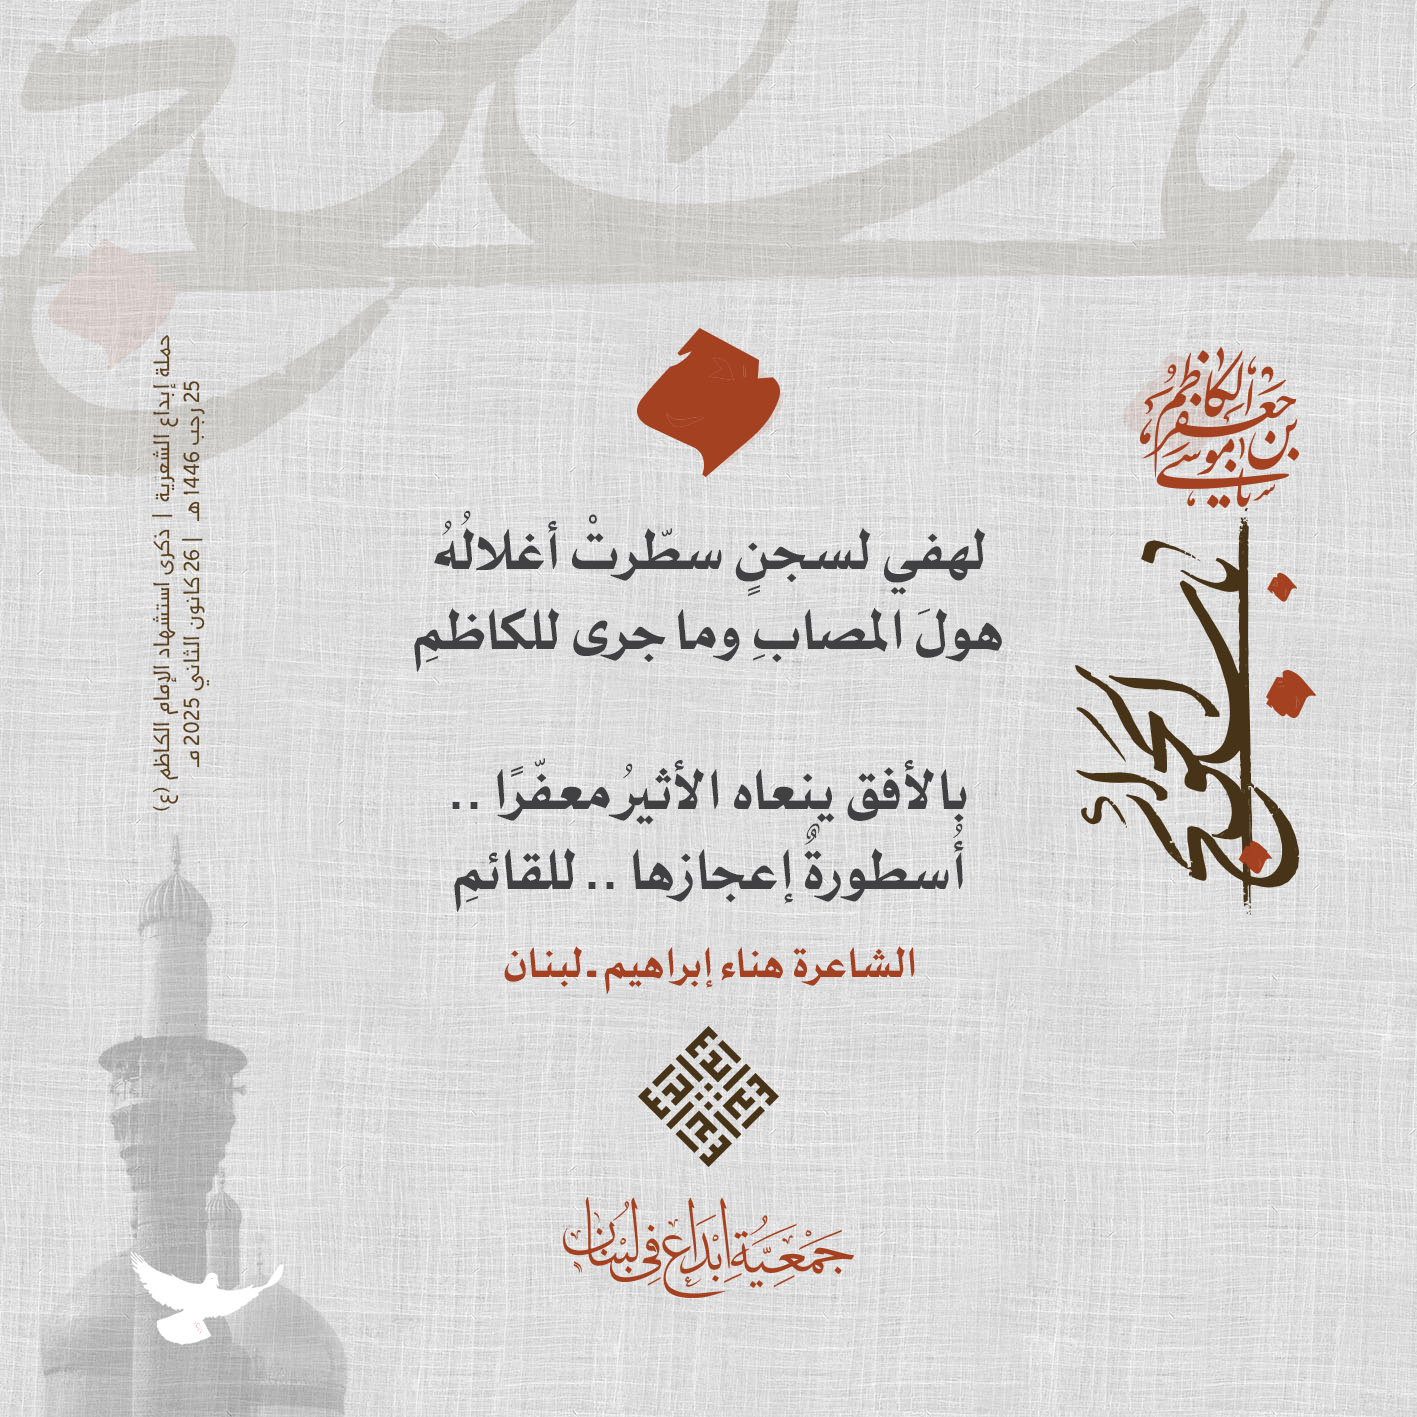 يا موسى
بن جعفر
الكاظم
يا باب الحوائج
لهفي لسجنٍ سطّرتْ أغلالُهُ
هولَ المصابِ وما جرى للكاظمِ
بالأفق ينعاه الأثيرُ معفّرًا ..
أُسطورةٌ إعجازها .. للقائمِ
الشاعرة هناء إبراهيم ـ لبنان
جَمْعِيَّةُ إِبْدَاع فِي لُبْنَان
حملة إبداع الشعرية | ذكرى استشهاد الإمام الكاظم (ع)
25 رجب 1446 هـ | 26 كانون الثاني 2025 مـ